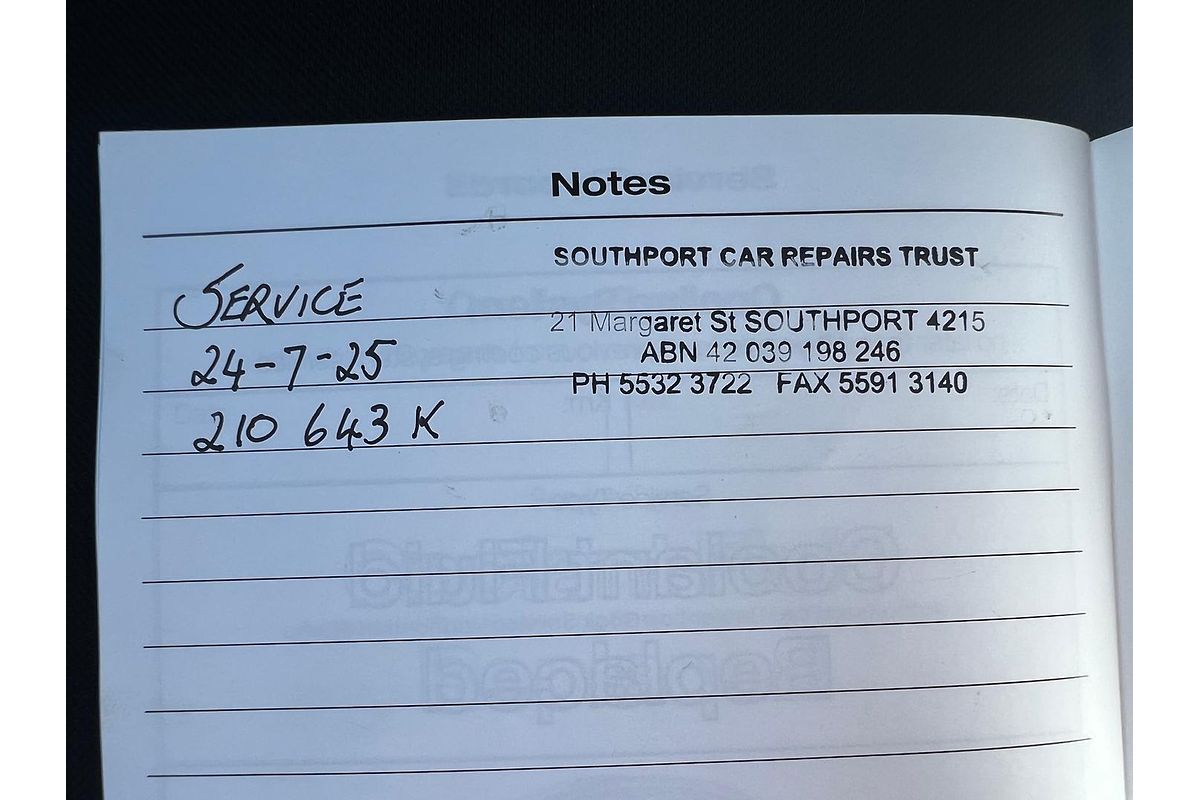 Notes
SOUTHPORT CAR REPAIRS TRUST
21 Margaret St SOUTHPORT 4215
ABN 42 039 198 246
PH 5532 3722 FAX 5591 3140
SERVICE
24-7-25
210 643 K